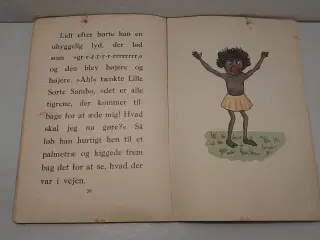 Lidt efter hørte han en
uhyggelig lyd, der lød
som »gr-r-r-r-r-rrrrrrrr,«
og den blev højere og
højere. »Åh!« tænkte Lille
Sorte Sambo, »det er alle
tigrene, der kommer til-
bage for at æde mig! Hvad
skal jeg nu gøre?« Så
løb han hurtigt hen til et
palmetræ og kiggede frem
bag det for at se, hvad der
var i vejen.